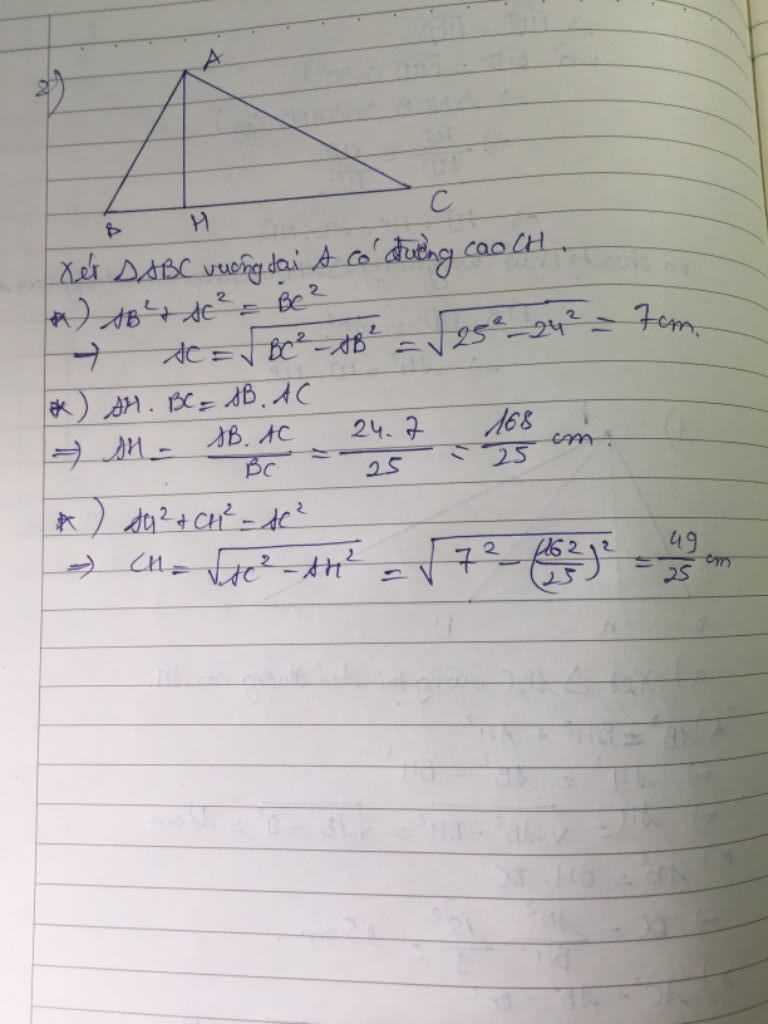 2)
A
B H C
Xét ΔABC vuông tại A có đường cao CH.
*) AB² + AC² = BC²
⇒ AC = √(BC² - AB²) = √(25² - 24²) = 7cm.
*) AH . BC = AB . AC
⇒ AH = (AB . AC)/BC = (24 . 7)/25 = 168/25 cm.
*) AH² + CH² = AC²
⇒ CH = √(AC² - AH²) = √(7² - (162/25)²) = 49/25 cm